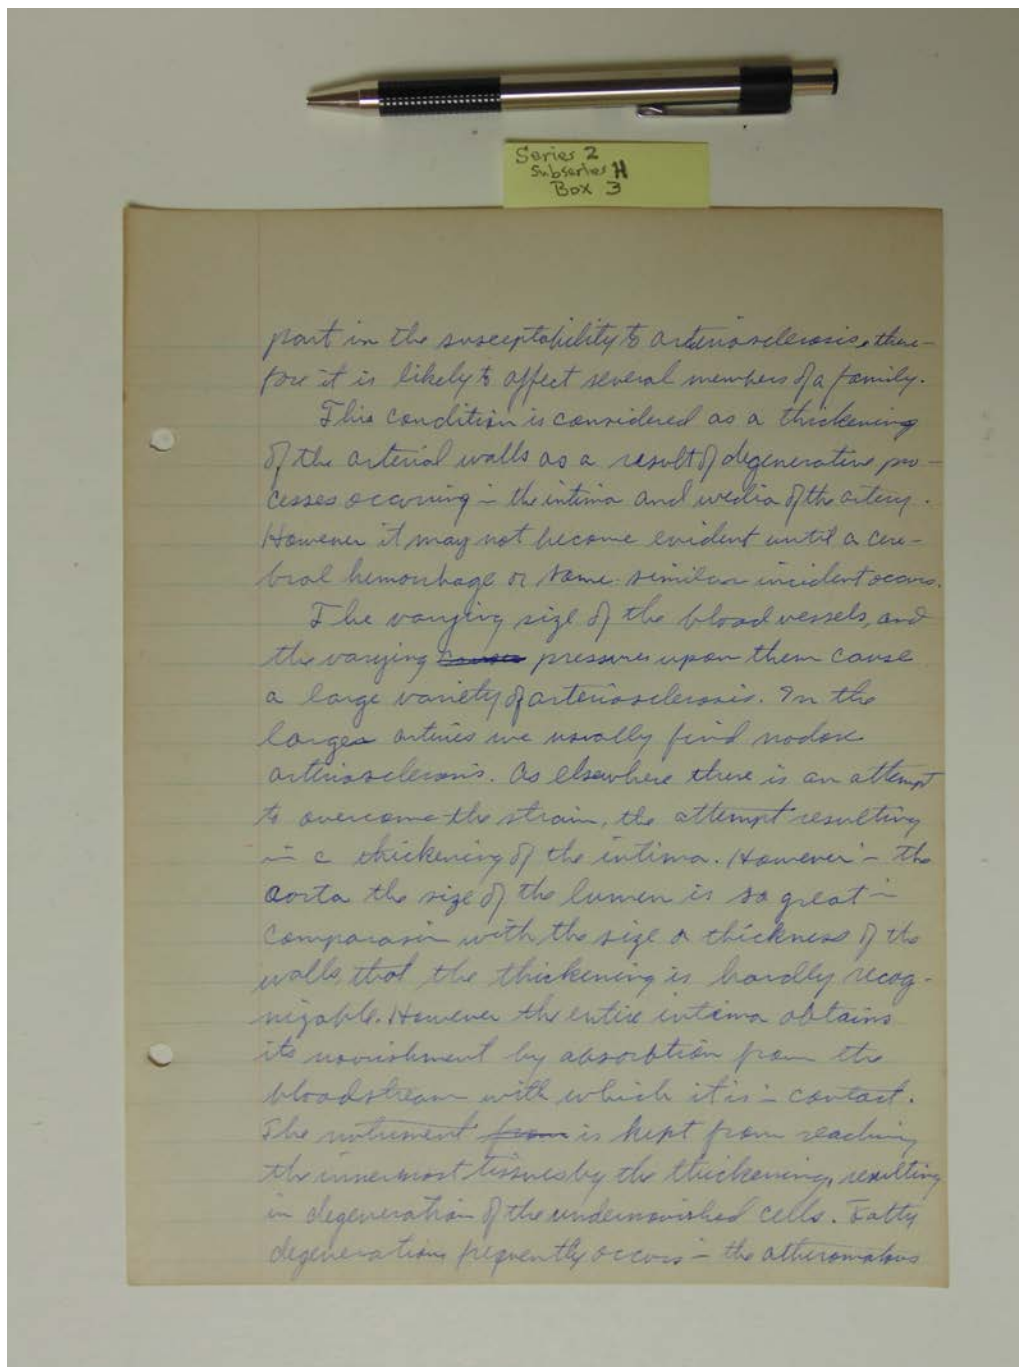 Series 2
Subseries H
Box 3
part in the susceptability to arteriosclerosis, there-
fore it is likely to affect several members of a family.
This condition is considered as a thickening
of the arterial walls as a result of degenerative pro-
cesses occuring in the intima and media of the artery.
However it may not become evident until a cere-
bral hemorrhage or some similar incident occurs.
The varying size of the blood vessels, and
the varying pressures upon them cause
a large variety of arteriosclerosis. In the
large arteries we usually find nodose
arteriosclerosis. As elsewhere there is an attempt
to overcome the strain, the attempt resulting
in a thickening of the intima. However in the
aorta the size of the lumen is so great in
comparason with the size or thickness of the
walls, that the thickening is hardly recog-
nizable. However the entire intima obtains
its nourishment by absorbtion from the
bloodstream with which it is in contact.
The nutriment from is kept from reaching
the innermost tissues by the thickening, resulting
in degeneration of the undernourished cells. Fatty
degenerations frequently occurs in the atheromatous